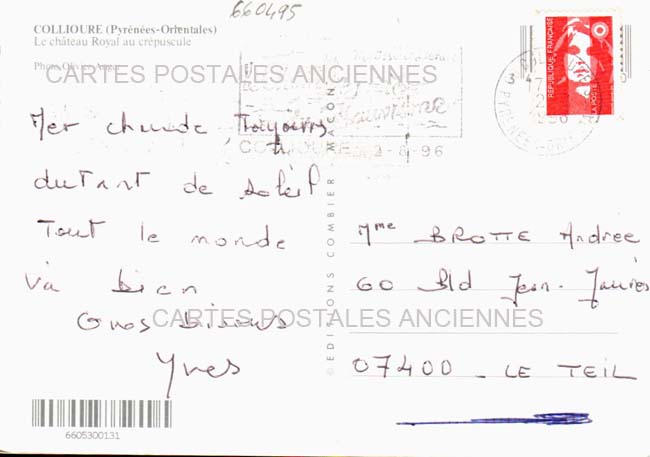 660495
COLLIOURE (Pyrénées-Orientales)
Le château Royal au crépuscule
CARTES POSTALES ANCIENNES
Mer chaude, Toujours
autant de soleil
Tout le monde
va bien
Gros bisous
Yves
COLLIOURE 2-8-96
© EDITIONS COMBIER MACON
RÉPUBLIQUE FRANÇAISE
LA POSTE
Mme BROTTE Andrée
60 Bld Jean-Jaurès
CARTES POSTALES ANCIENNES
07400 - LE TEIL
6605300131